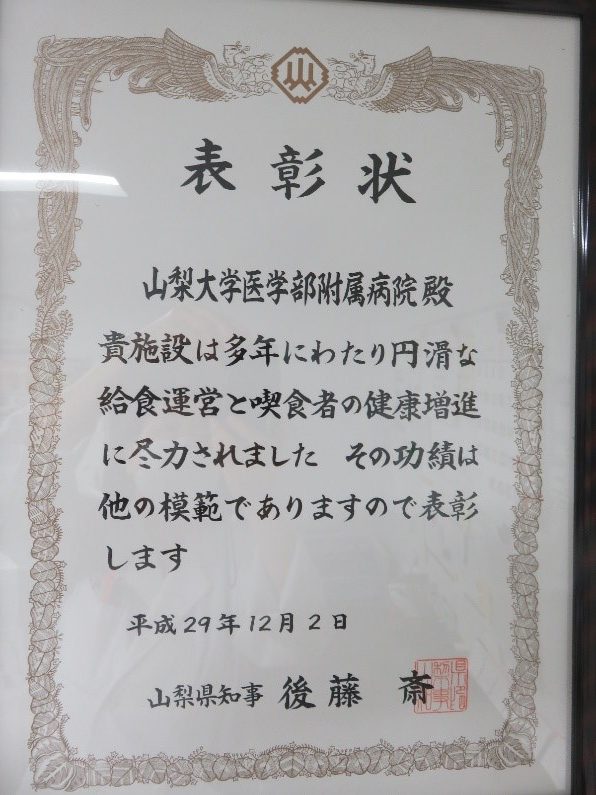 表彰状
山梨大学医学部附属病院殿
貴施設は多年にわたり円滑な
給食運営と喫食者の健康増進
に尽力されました　その功績は
他の模範でありますので表彰
します
平成29年12月2日
山梨県知事 後藤 斎